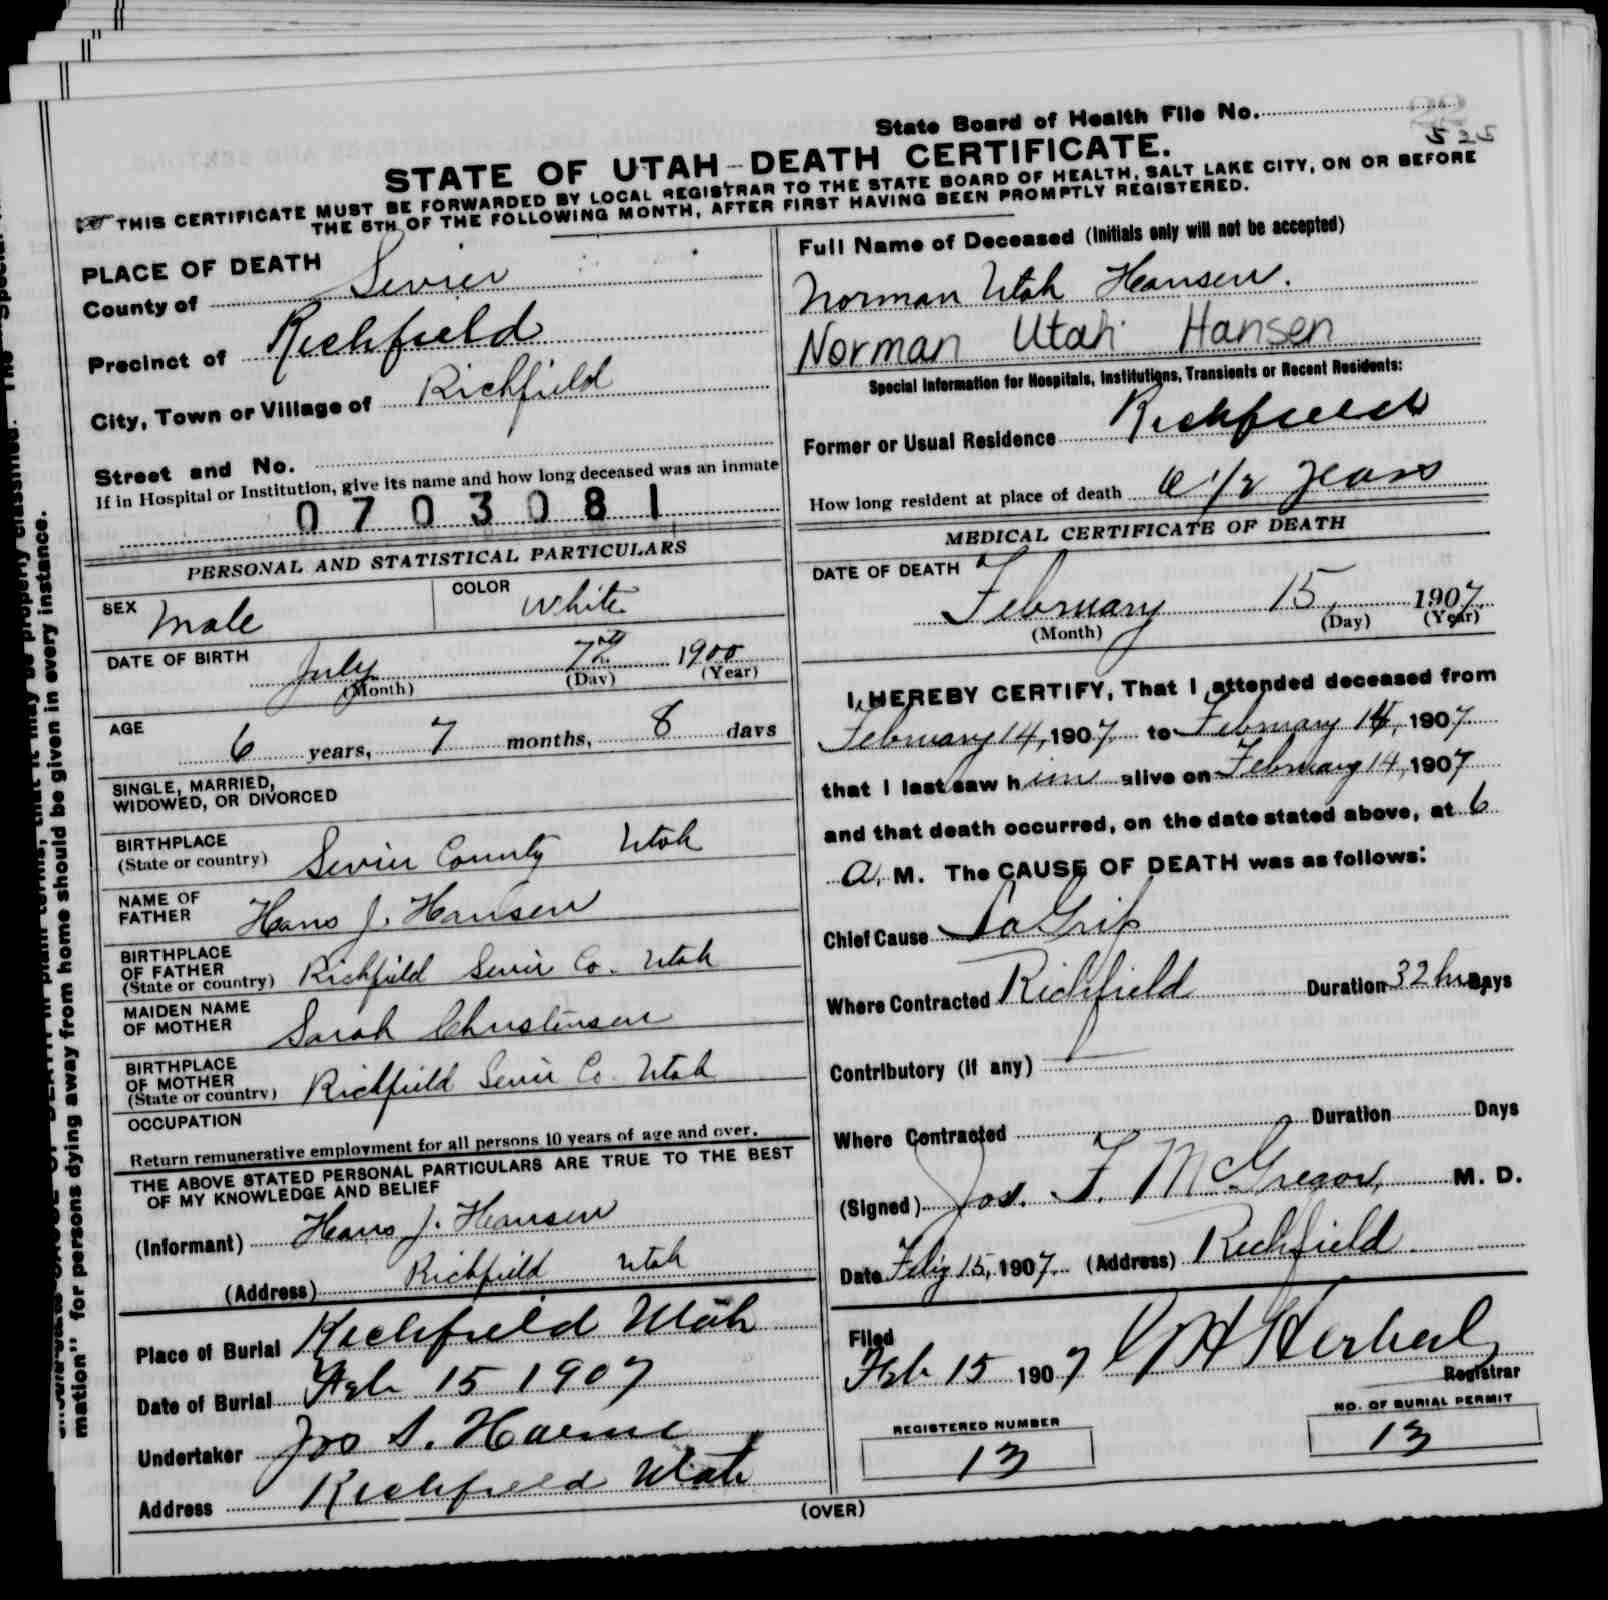 State Board of Health File No.
525
STATE OF UTAH - DEATH CERTIFICATE.
THIS CERTIFICATE MUST BE FORWARDED BY LOCAL REGISTRAR TO THE STATE BOARD OF HEALTH, SALT LAKE CITY, ON OR BEFORE
THE 5TH OF THE FOLLOWING MONTH, AFTER FIRST HAVING BEEN PROMPTLY REGISTERED.
PLACE OF DEATH
County of Sevier
Precinct of Richfield
City, Town or Village of Richfield
Street and No.
If in Hospital or Institution, give its name and how long deceased was an inmate
0703081
PERSONAL AND STATISTICAL PARTICULARS
SEX Male COLOR White
DATE OF BIRTH July 7th 1900
(Month) (Day) (Year)
AGE 6 years, 7 months, 8 days
SINGLE, MARRIED,
WIDOWED, OR DIVORCED
BIRTHPLACE
(State or country) Sevier County Utah
NAME OF
FATHER Hans J. Hansen
BIRTHPLACE
OF FATHER
(State or country) Richfield Sevier Co. Utah
MAIDEN NAME
OF MOTHER Sarah Christensen
BIRTHPLACE
OF MOTHER
(State or country) Richfield Sevier Co. Utah
OCCUPATION
Return remunerative employment for all persons 10 years of age and over.
THE ABOVE STATED PERSONAL PARTICULARS ARE TRUE TO THE BEST
OF MY KNOWLEDGE AND BELIEF
(Informant) Hans J. Hansen
(Address) Richfield Utah
Place of Burial Richfield Utah
Date of Burial Feb 15 1907
Undertaker Jos S.
Address Richfield Utah
Full Name of Deceased (Initials only will not be accepted)
Norman Utah Hansen.
Norman Utah Hansen
Special Information for Hospitals, Institutions, Transients or Recent Residents:
Former or Usual Residence Richfield
How long resident at place of death 6 1/2 years
MEDICAL CERTIFICATE OF DEATH
DATE OF DEATH
February 15, 1907
(Month) (Day) (Year)
I HEREBY CERTIFY, That I attended deceased from
February 14, 1907 to February 14, 1907
that I last saw him alive on February 14, 1907
and that death occurred, on the date stated above, at 6
a. M. The CAUSE OF DEATH was as follows:
Chief Cause La Grip
Where Contracted Richfield Duration 32 hrs Days
Contributory (if any)
Where Contracted Duration Days
(Signed) Jos. F. McGregor, M. D.
Date 15, 1907. (Address) Richfield
Filed
Feb 15 1907 Herbert
Registrar
REGISTERED NUMBER
13
NO. OF BURIAL PERMIT
13
(OVER)
mation" for persons dying away from home should be given in every instance.